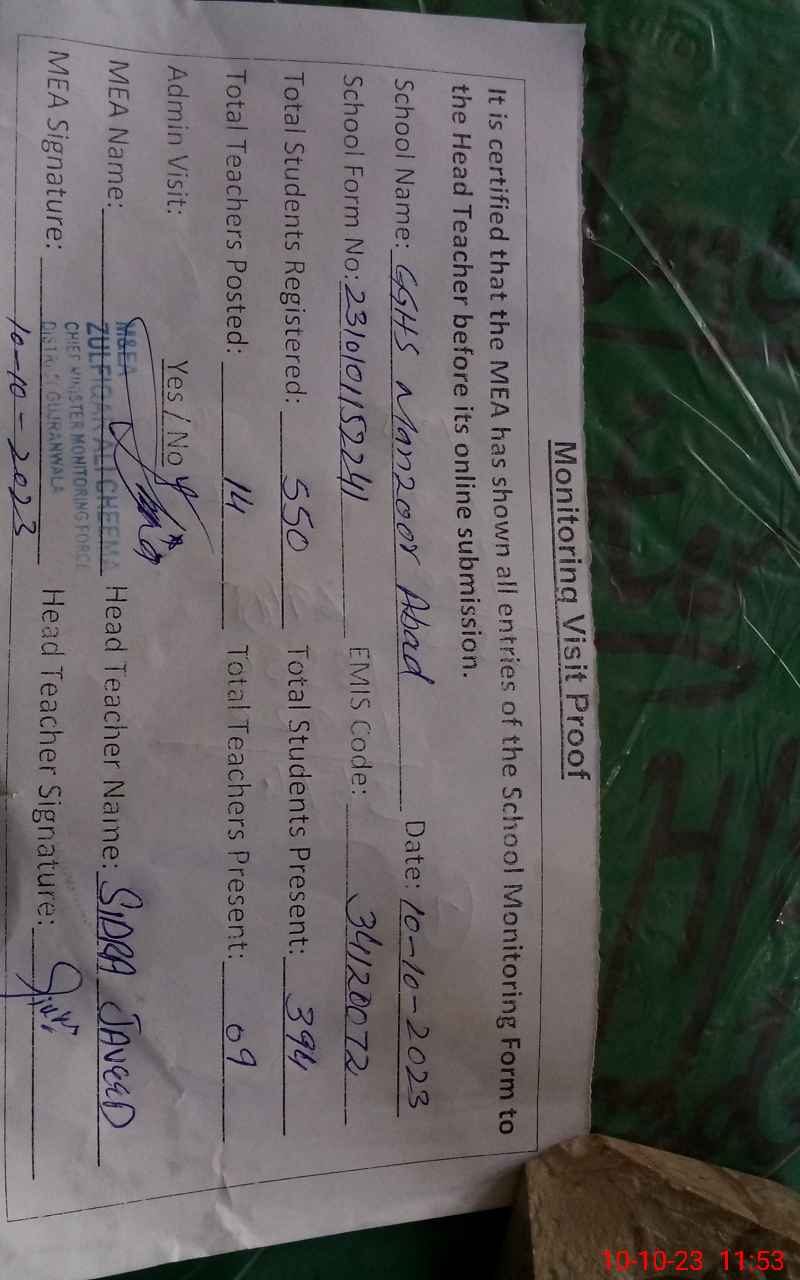 Monitoring Visit Proof
It is certified that the MEA has shown all entries of the School Monitoring Form to
the Head Teacher before its online submission.
School Name: GGHS Manzoor Abad Date: 10-10-2023
School Form No: 2310101152241 EMIS Code: 34120072
Total Students Registered: 550 Total Students Present: 394
Total Teachers Posted: 14 Total Teachers Present: 09
Admin Visit: Yes / No
MEA Name: Head Teacher Name: SIDRA JAVEED
M&EA
ZULFIQAR ALI CHEEMA
CHIEF MINISTER MONITORING FORCE
DISTRICT GUJRANWALA
MEA Signature: Head Teacher Signature:
10-10-2023
10-10-23 11:53